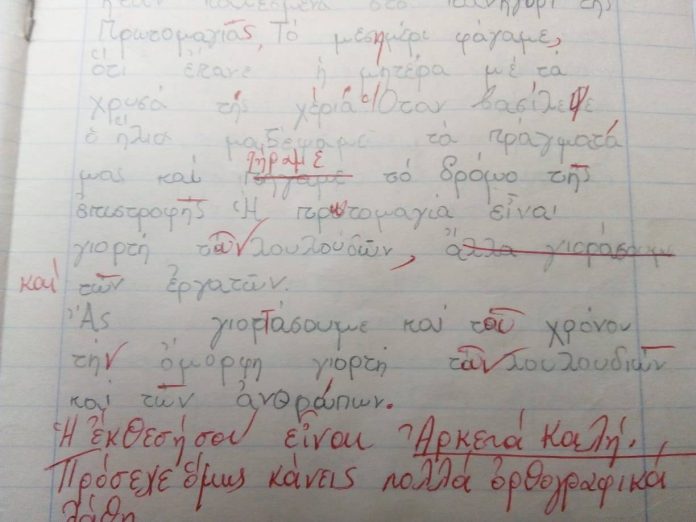 καλεσμένα στό πανηγύρι τῆς
Πρωτομαγιᾶς, Τό μεσημέρι φάγαμε,
ὅτι ἔκανε ἡ μητέρα μέ τά
χρυσά τῆς χέρια. Ὅταν βασίλεψε
ὁ ἥλιο μαζέψαμε τά πράγματά
πήραμε
μας καί πήγαμε τό δρόμο τῆς
ἐπιστροφῆς Ἡ πρωτομαγιά εἶναι
γιορτή τῶν λουλουδιῶν, ἄλλα γιοράσουμε
καί τῶν ἐργατῶν.
Ἄς γιορτάσουμε καί τοῦ χρόνου
τήν ὄμορφη γιορτή τῶν λουλουδιῶν
καί τῶν ἀνθρώπων.
Ἡ ἔκθεσή σου εἶναι Ἀρκετά καλή.
Πρόσεχε ὅμως κάνεις πολλά ὀρθογραφικά
λάθη